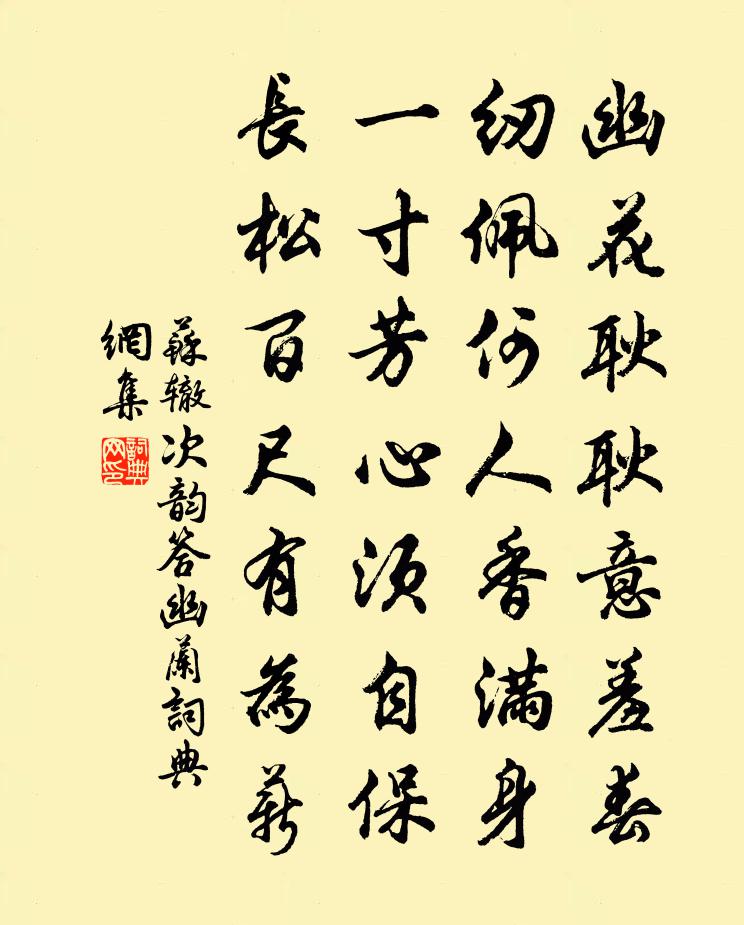 幽花耿耿意羞春
紉佩何人香滿身
一寸芳心須自保
長松百尺有為薪
蘇辙次韵答幽蘭詞典
網集
詞典
网印